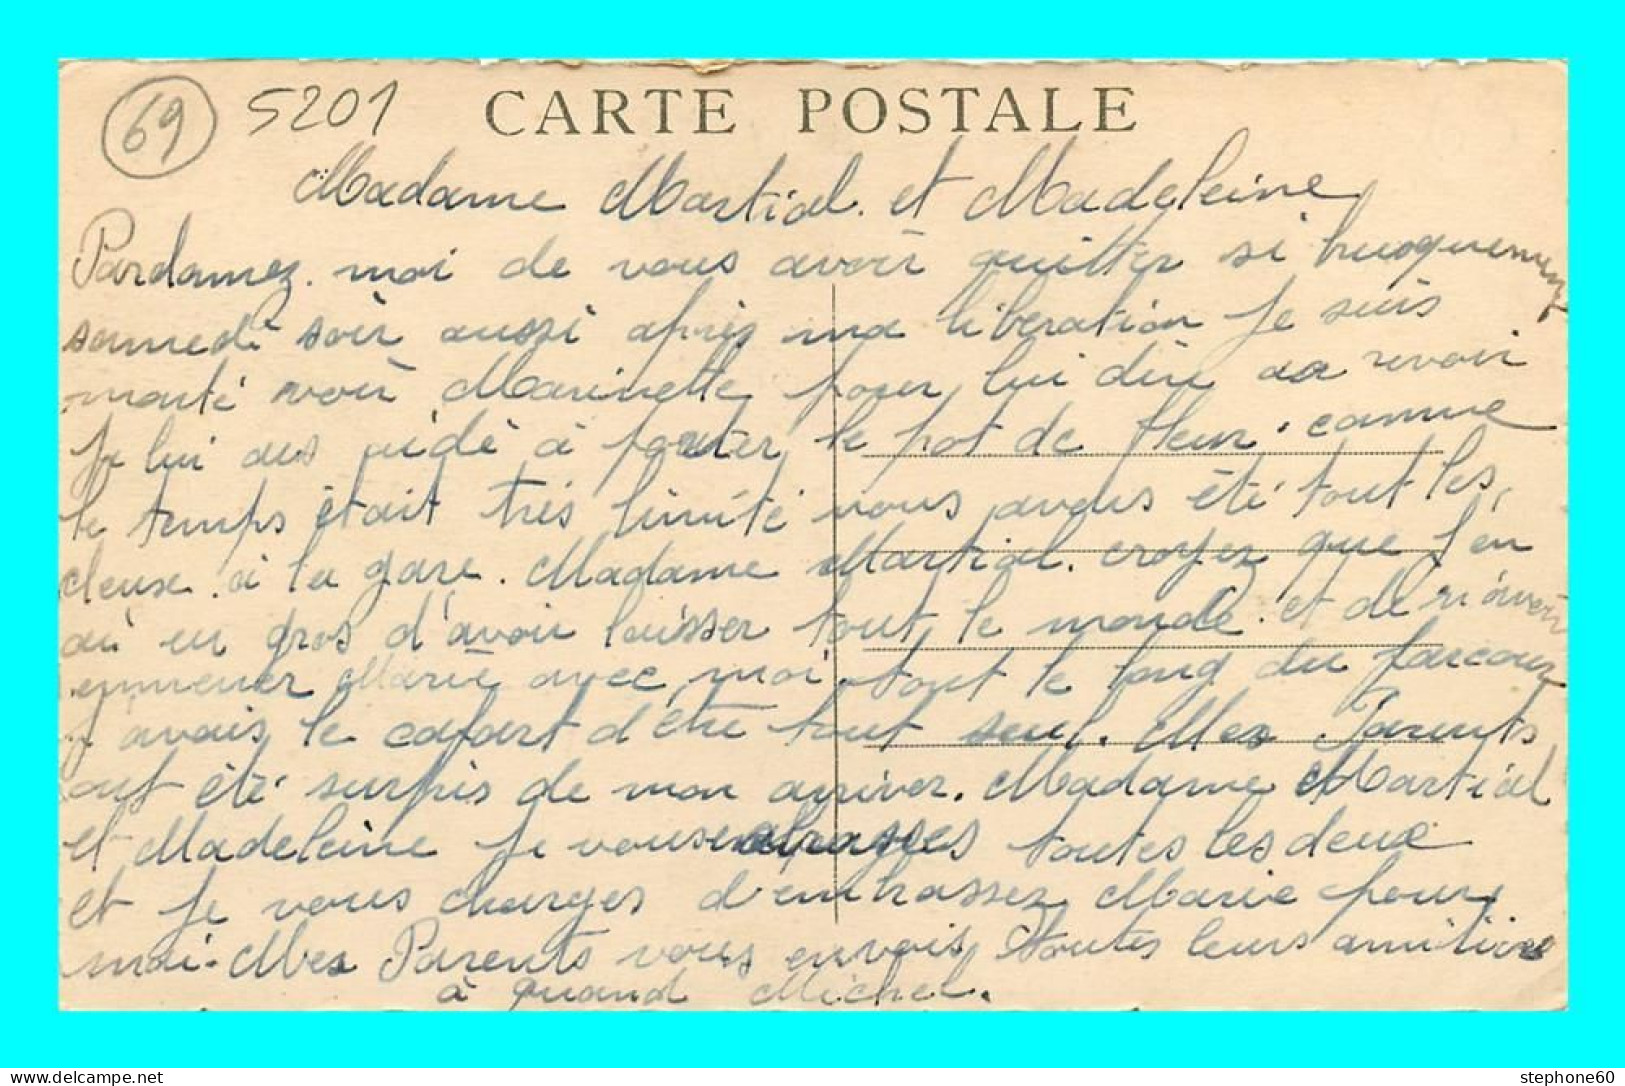 69 5201 CARTE POSTALE
Madame Martial et Madeleine
Pardonnez moi de vous avoir quitter si brusquement
samedi soir aussi après ma libération je suis
monté voir Marinette pour lui dire au revoir
je lui ais aidé à porter le pot de fleur. comme
le temps était très limité vous avous été tout les
deuse à la gare. Madame Martial. croyez que j'en
ai eu gros d'avoir laisser tout le monde. et de n'avoir
emmener Marie avec moi. tout le long du parcour
j'avais le cafart d'être tout seul. Mes Parents
ont été surpris de mon arriver. Madame Martial
et Madeleine je vous embrasses toutes les deux
et je vous charges d'embrassez Marie pour
moi. Mes Parents vous envois toutes leurs amitiers
à quand Michel.
stephone60